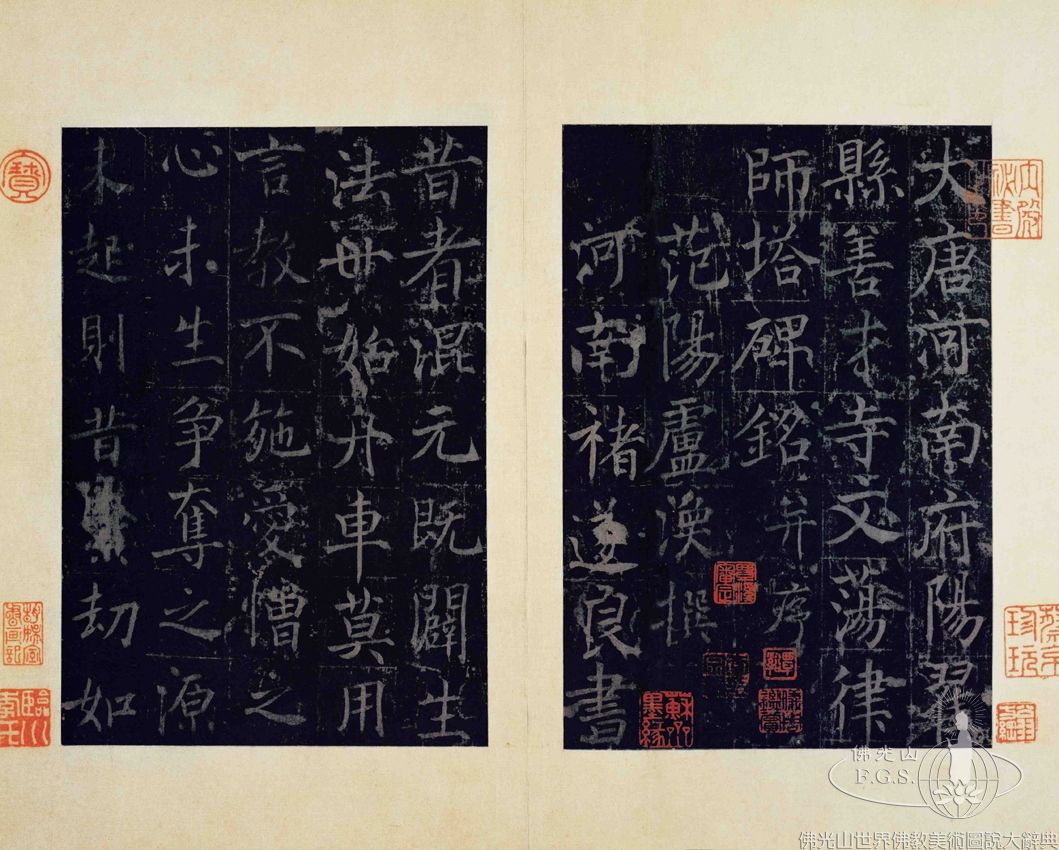 大唐河南府陽翟
縣善才寺文蕩律
師塔碑銘并序
范陽盧渙撰
河南褚遂良書
昔者混元既闢生
法毋始舟車莫用
言教不施愛憎之
心未生爭奪之源
未起則昔劫如
寶
珍玩
蘇齋墨緣
佛光山
F.G.S.
佛光山世界佛教美術圖說大辭典